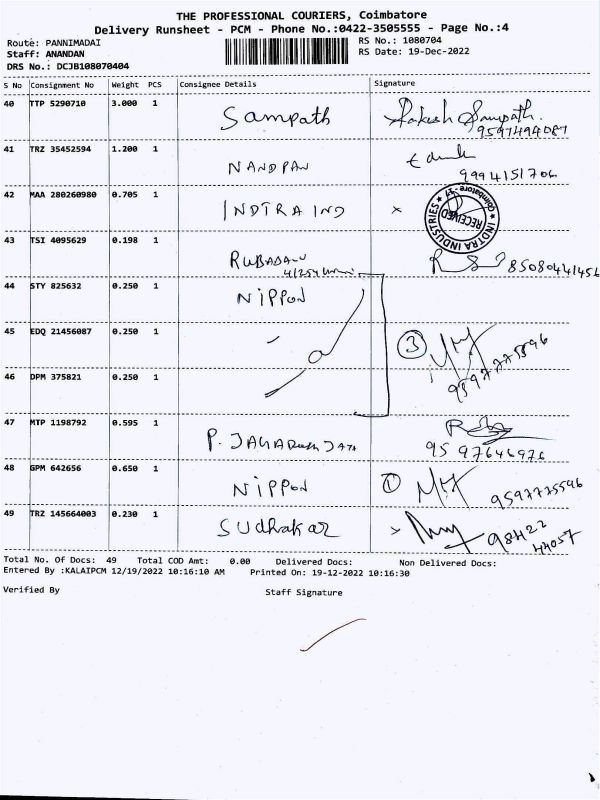 THE PROFESSIONAL COURIERS, Coimbatore
Delivery Runsheet - PCM - Phone No.:0422-3505555 - Page No.:4
Route: PANNIMADAI RS No.: 1080704
Staff: ANANDAN RS Date: 19-Dec-2022
DRS No.: DCJB108070404
S No Consignment No Weight PCS Consignee Details Signature
40 TTP 5290710 3.000 1 Sampath Rakesh Sampath.
9597494087
41 TRZ 35452594 1.200 1 NANDPAN
9994151706
42 MAA 280260980 0.705 1 INDTRA IND x INDTRA INDUSTRIES RECEIVED Coimbatore-17
43 TSI 4095629 0.198 1 RUBADAN 8508041456
44 STY 825632 0.250 1 NIPPON
45 EDQ 21456087 0.250 1 3 9597775596
46 DPM 375821 0.250 1
47 MTP 1198792 0.595 1 P. 9597646976
48 GPM 642656 0.650 1 NIPPON 1 9597775596
49 TRZ 145664003 0.230 1 SUdhakar 98422
44057
Total No. Of Docs: 49 Total COD Amt: 0.00 Delivered Docs: Non Delivered Docs:
Entered By :KALAIPCM 12/19/2022 10:16:10 AM Printed On: 19-12-2022 10:16:30
Verified By Staff Signature